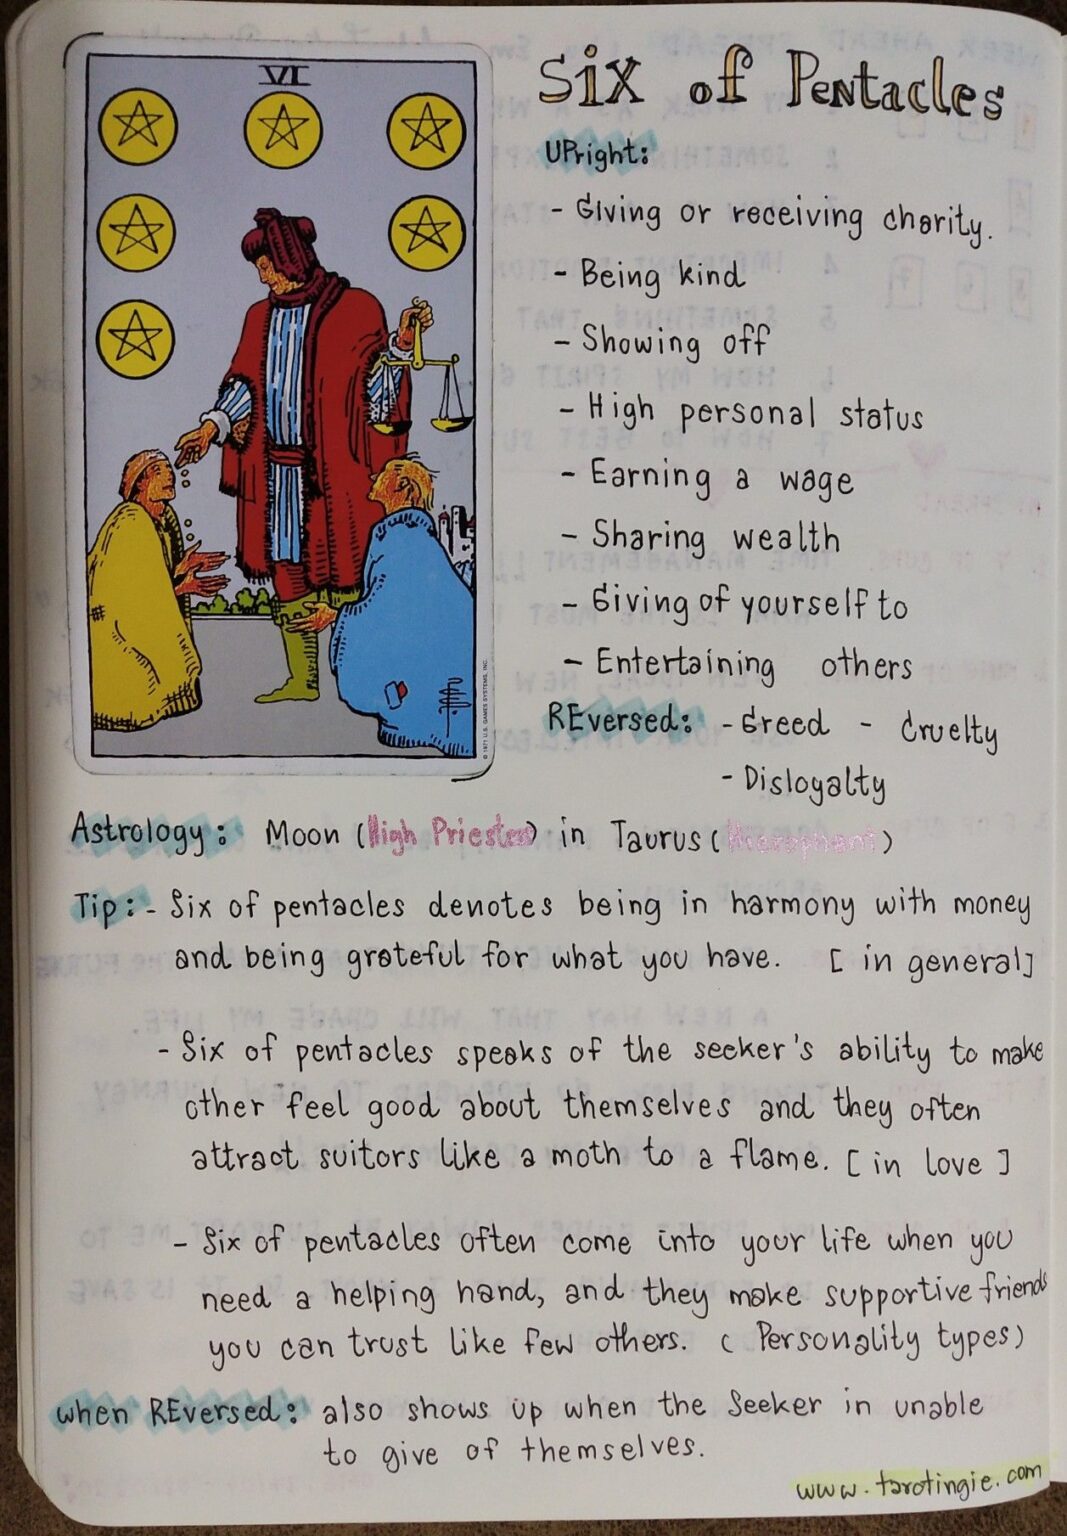 VI
Six of Pentacles
UPright:
- Giving or receiving charity.
- Being kind
- Showing off
- High personal status
- Earning a wage
- Sharing wealth
- Giving of yourself to
- Entertaining others
REversed: - Greed - Cruelty
- Disloyalty
Astrology: Moon (High Priestess) in Taurus (Hierophant)
Tip: - Six of pentacles denotes being in harmony with money
and being grateful for what you have. [in general]
- Six of pentacles speaks of the seeker's ability to make
other feel good about themselves and they often
attract suitors like a moth to a flame. [in love]
- Six of pentacles often come into your life when you
need a helping hand, and they make supportive friends
you can trust like few others. (Personality types)
when REversed: also shows up when the Seeker in unable
to give of themselves.
www.tarotingie.com
© 1971 U.S. GAMES SYSTEMS, INC.